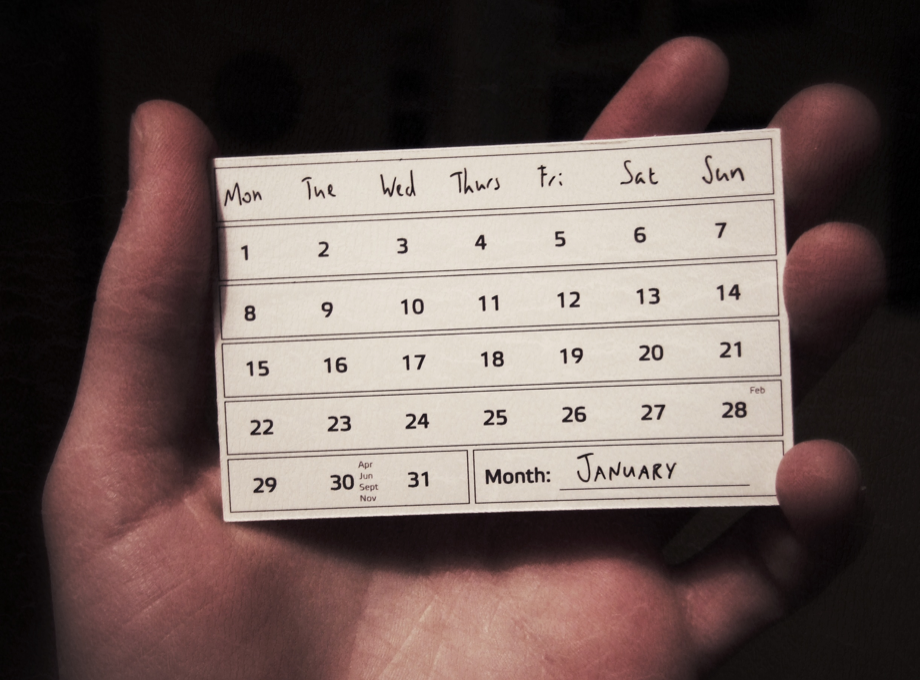 Mon Tue Wed Thurs Fri Sat Sun
1 2 3 4 5 6 7
8 9 10 11 12 13 14
15 16 17 18 19 20 21
Feb
22 23 24 25 26 27 28
29 30 Apr Jun Sept Nov 31 Month: JANUARY